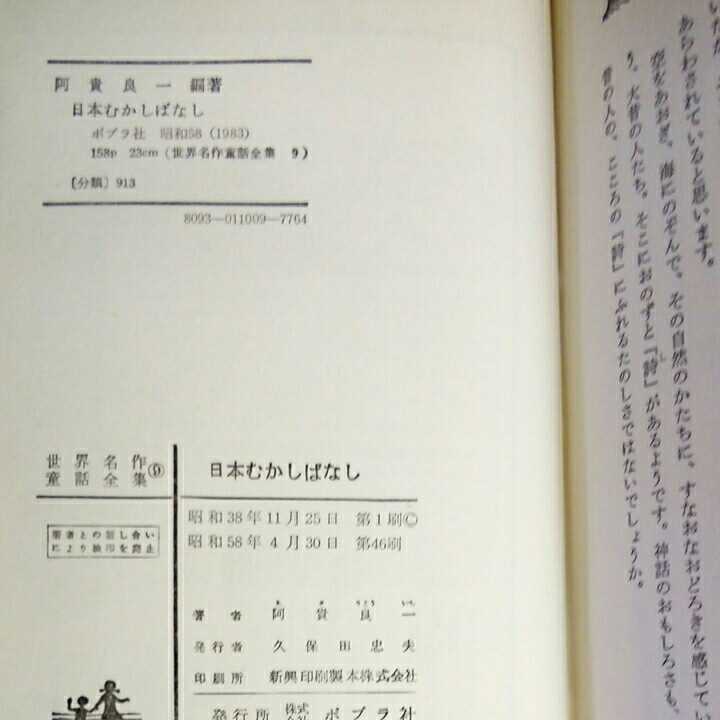 阿貴良一編著
日本むかしばなし
ポプラ社 昭和58 (1983)
158p 23cm (世界名作童話全集 9)
〔分類〕 913
8093—011009—7764
世界名作
童話全集⑨
著者との話し合い
により検印を廃止
日本むかしばなし
昭和38年11月25日 第1刷©
昭和58年4月30日 第46刷
著者 阿貴良一
発行者 久保田忠夫
印刷所 新興印刷製本株式会社
発行所 株式会社 ポプラ社
あらわされていると思います。
空をあおぎ、海にのぞんで、その自然のかたちに、すなおなおどろきを感じてい
り、大昔の人たち。そこにおのずと『詩』があるようです。神話のおもしろさも、
昔の人の、こころの『詩』にふれるたのしさではないでしょうか。